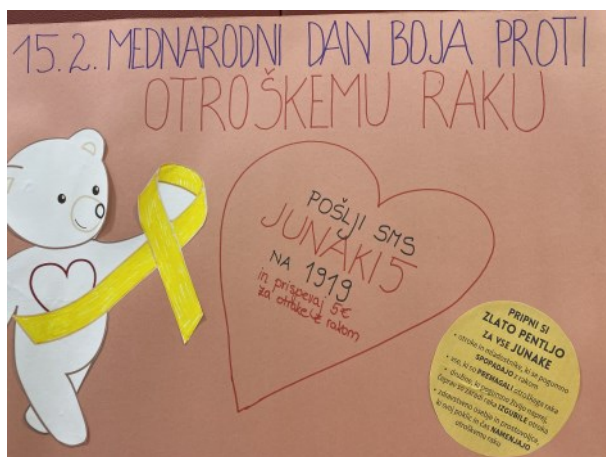 15.2. MEDNARODNI DAN BOJA PROTI
OTROŠKEMU RAKU
POŠLJI SMS
JUNAKI5
NA 1919
in prispevaj 5€
za otroke z rakom
PRIPNI SI
ZLATO PENTLJO
ZA VSE JUNAKE
• otroke in mladostnike, ki se pogumno
SPOPADAJO z rakom
• vse, ki so PREMAGALI otroškega raka
• družine, ki pogumno živijo naprej,
čeprav so zaradi raka IZGUBILE otroka
• zdravstveno osebje in prostovoljce,
ki svoj poklic in čas NAMENJAJO
otroškemu raku